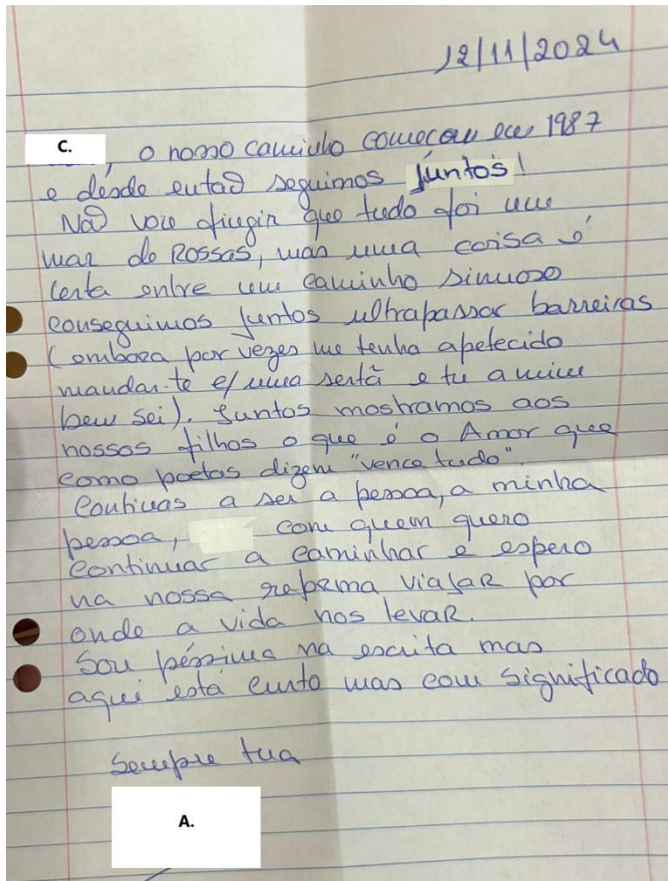 12/11/2024
C. , o nosso caminho começou em 1987
e desde então seguimos juntos!
Não vou fingir que tudo foi um
mar de Rossas, mas uma coisa é
certa entre um caminho sinuoso
conseguimos juntos ultrapassar barreiras
(embora por vezes me tenha apetecido
mandar-te c/ uma sertã e tu a mim
bem sei). Juntos mostramos aos
nossos filhos o que é o Amor que
como poetas dizem "vence tudo".
Continuas a ser a pessoa, a minha
pessoa, com quem quero
continuar a caminhar e espero
na nossa reforma viajar por
onde a vida nos levar.
Sou péssima na escrita mas
aqui está curto mas com significado
Sempre tua
A.